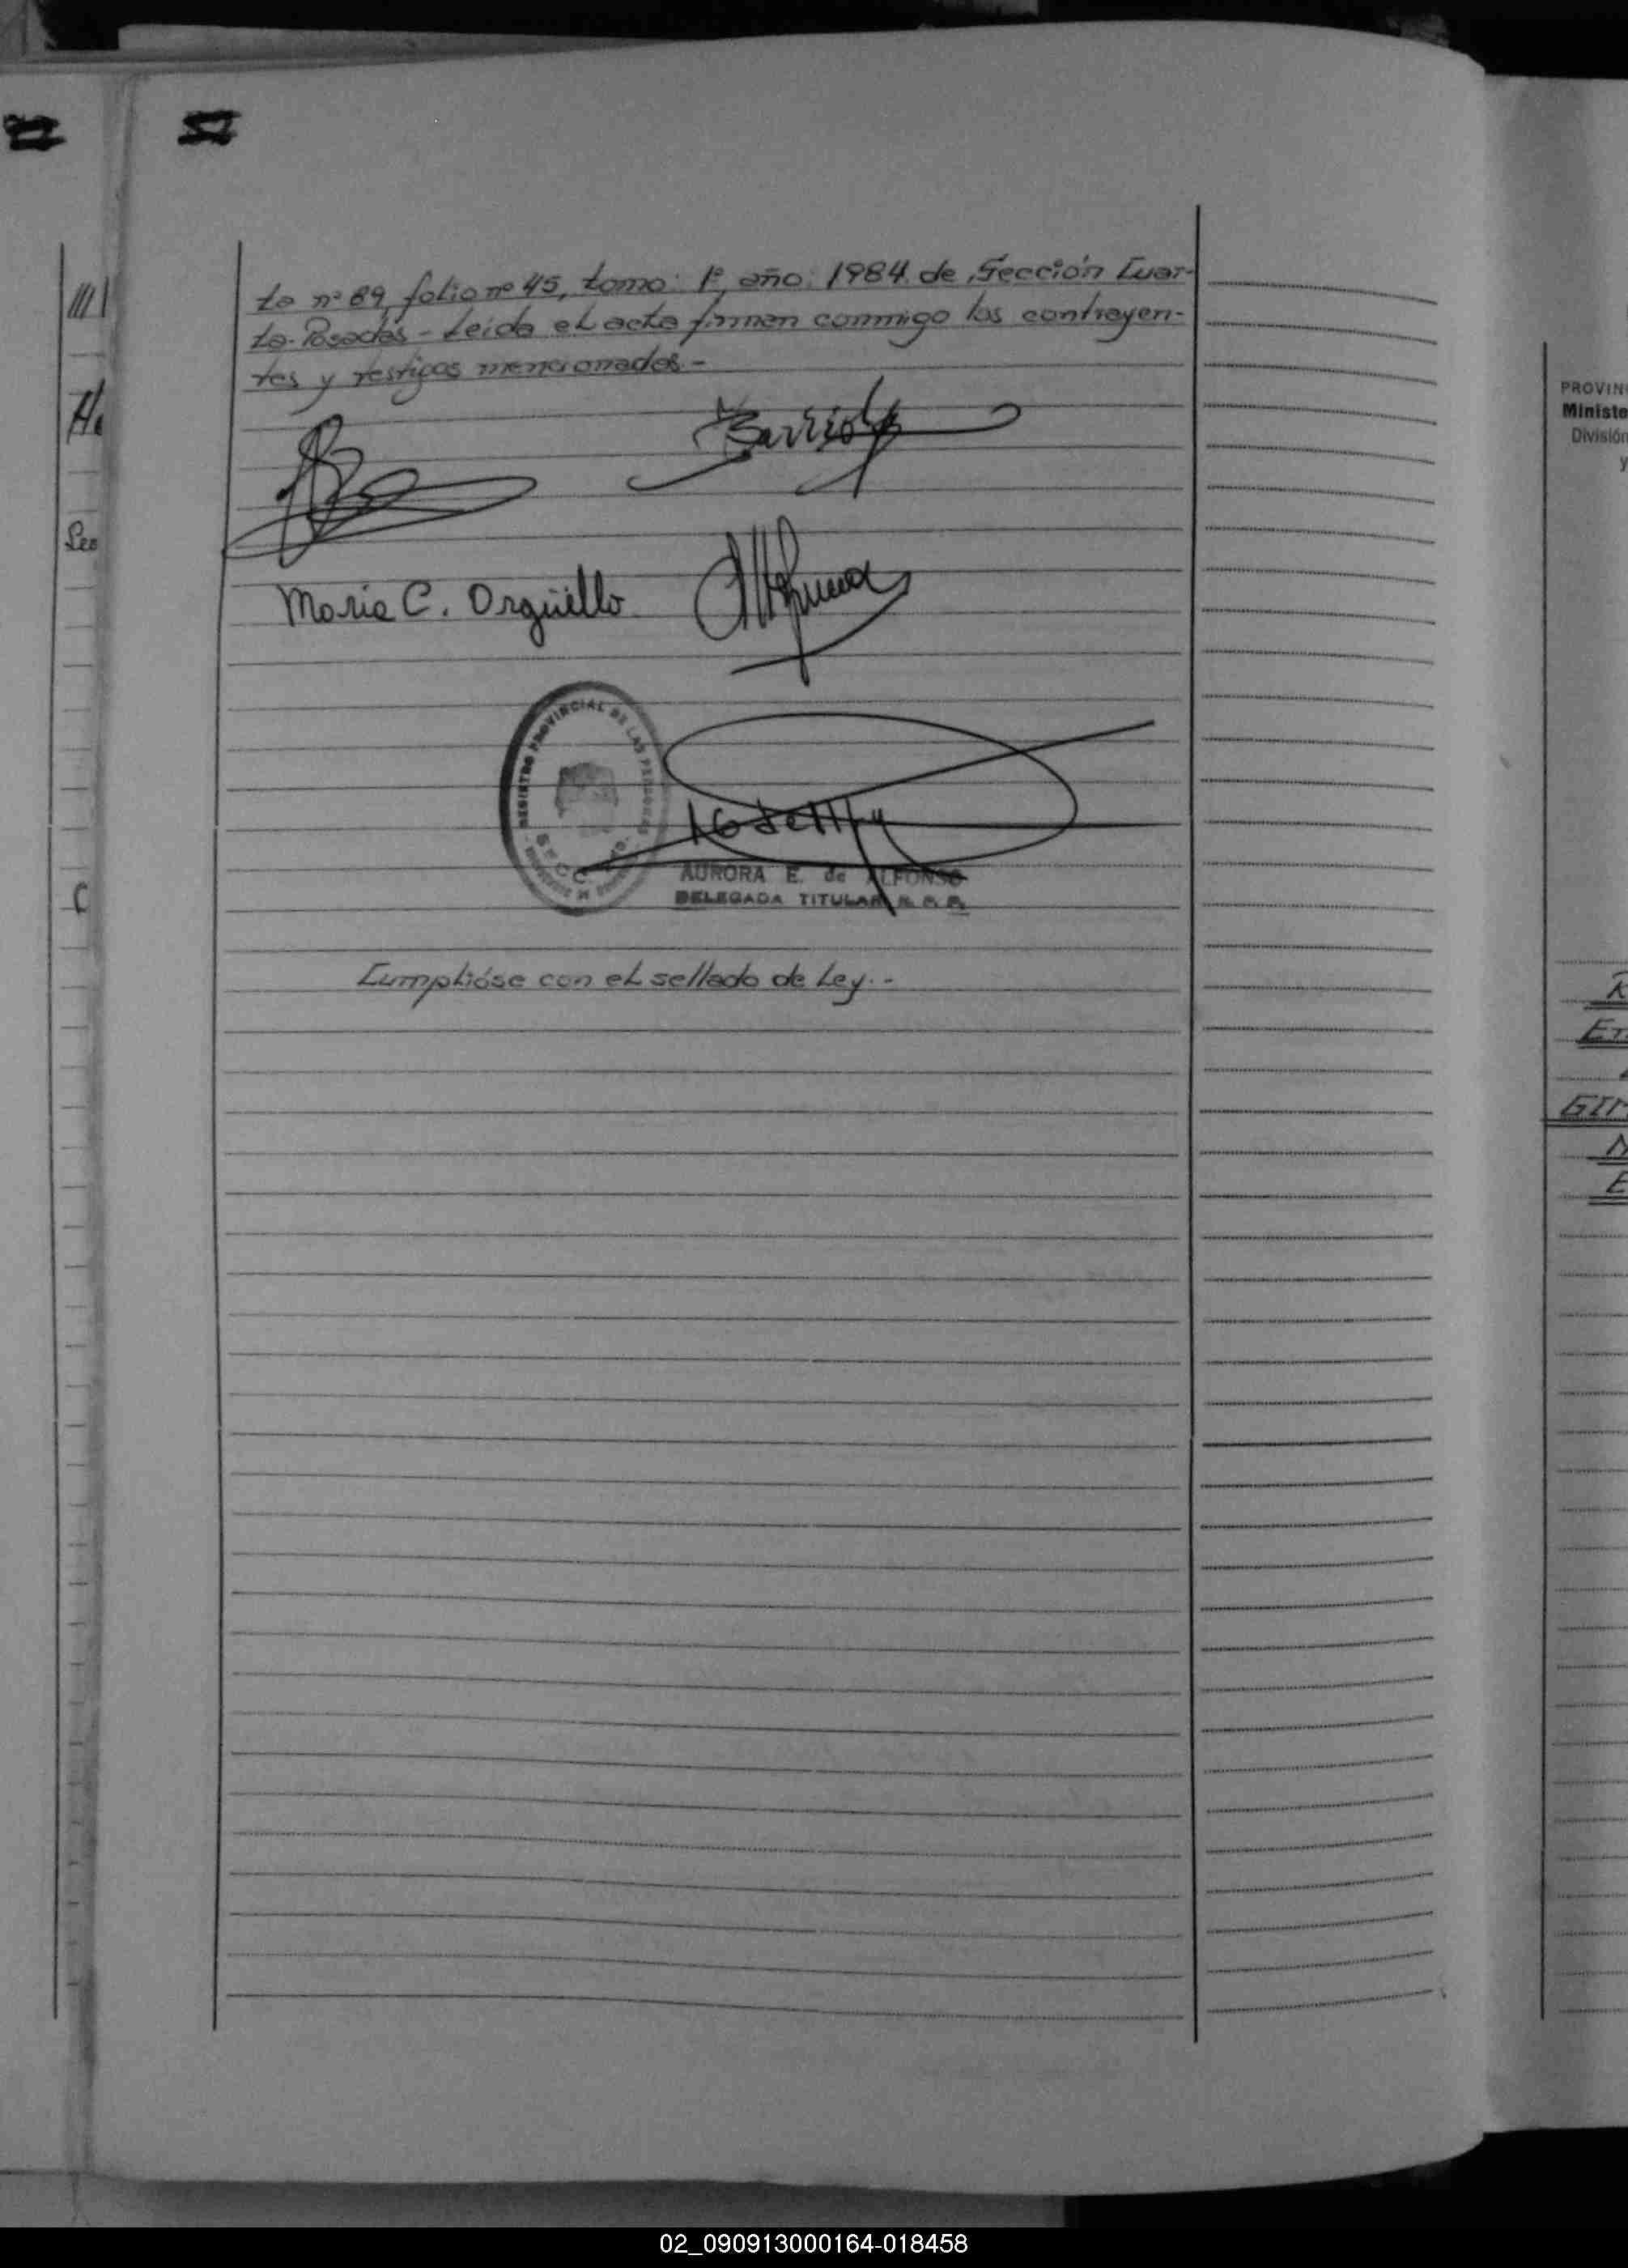 ta nº 89, folio nº 45, tomo: 1º, año: 1984. de Sección Cuar-
ta. Posadas - Leída el acta firman conmigo los contrayen-
tes y testigos mencionados.-
Barrios
Maria C. Orgüello
REGISTRO PROVINCIAL DE LAS PERSONAS
SECC.
AURORA E. de ALFONSO
DELEGADA TITULAR R. P. P.
Cumplióse con el sellado de Ley.-
Leo
C
PROVIN
Ministe
División
y
ET
GIM
E
02_090913000164-018458